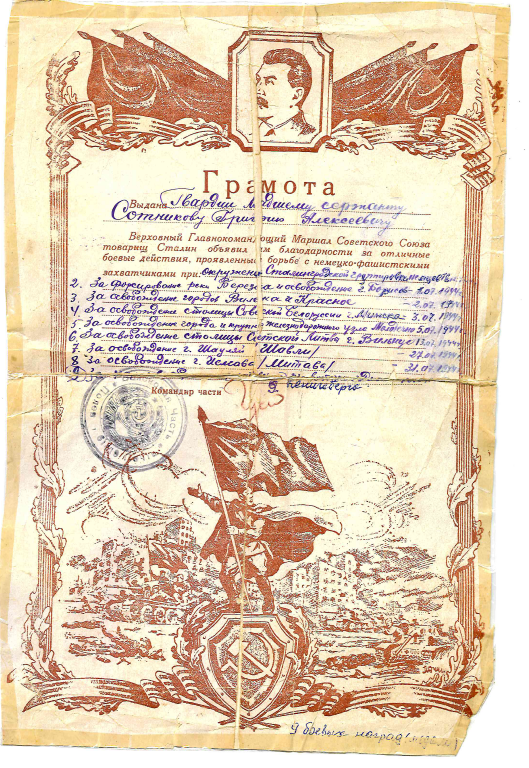 Грамота
Выдана Гвардии Младшему сержанту
Сотникову Григорию Алексеевичу
Верховный Главнокомандующий Маршал Советского Союза
товарищ Сталин объявил Вам благодарности за отличные
боевые действия, проявленные в борьбе с немецко-фашистскими
захватчиками при: окружении Сталинградской группировки немцев
2. За форсирование реки Березина и освобождение г. Борисов - 3.07.1944г.
3. За освобождение городов Вилейка и Красное - 2.07.1944г.
4. За освобождение столицы Советской Белоруссии г. Минска - 3.07.1944г.
5. За освобождение города и крупн. железнодорожного узла Молодечно 5.07.1944г.
6. За освобождение столицы Советской Литвы г. Вильнюс 13.07.1944г.
7. За освобождение г. Шауляй /Шавли/ - 27.07.1944г.
8. За освобождение г. Иелгава /Митава/ - 31.07.1944г.
9. Кенигсберг
Командир части
9 боевых наград